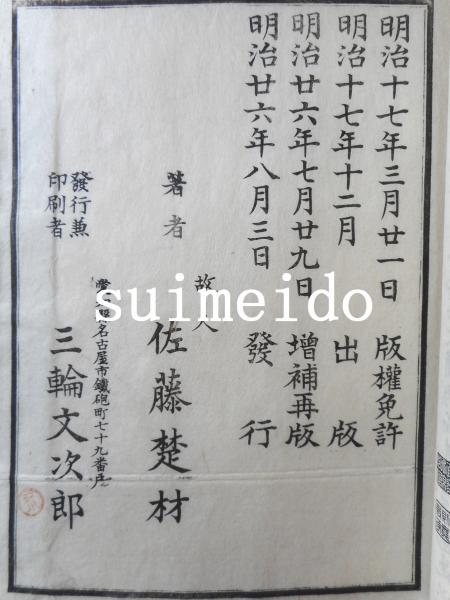 明治十七年三月廿一日 版權免許
明治十七年十二月 出版
明治廿六年七月廿九日 增補再版
明治廿六年八月三日 發行
著者 故人 佐藤楚材
縣名古屋市鐵砲町七十九番戶
發行兼
印刷者
三輪文次郎
suimeido